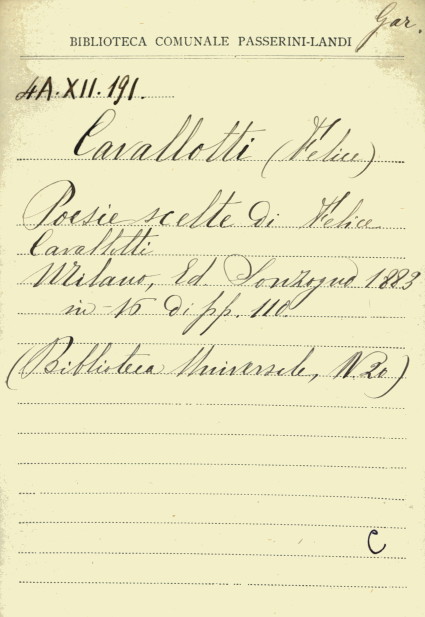 Gar.
BIBLIOTECA COMUNALE PASSERINI-LANDI
4A.XII.191.
Cavallotti (Felice)
Poesie scelte di Felice
Cavallotti
Milano, Ed. Sonzogno 1883
in-16 di pp. 110.
(Biblioteca Universale, N. 20)
C